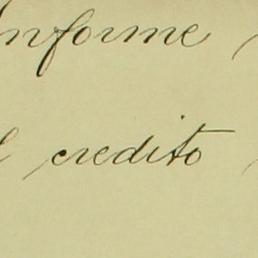 Informe
credito